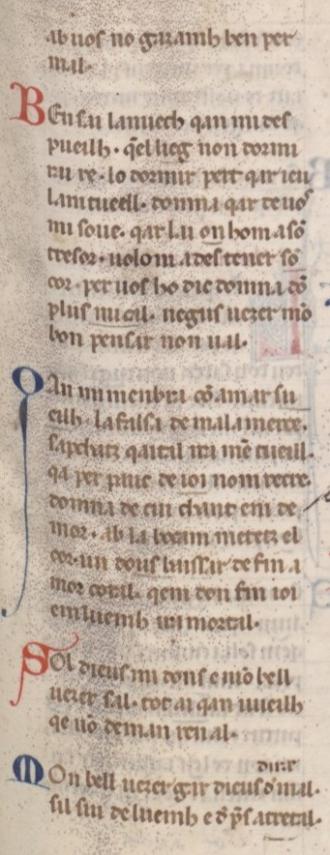 ab uos no gazamh ben per
mal.
Ben fai la nuech qan mi des
pueilh. qel lieg non dormi
rai re. lo dormir pert qar ieu
lam tueill. domna qar de uos
mi soue. qar lai on hom a sõ
tresor. uolom ades tener so
cor. per uos ho dic domna cõ
plus mi cal. negus uezer mõ
bon pensar non ual.
Qan mi menbra cõ amar su
eilh. la falsa de mala merce.
sapchatz qaital ira mẽ cueill.
qa per pauc de ioi nom recre.
domna de cui chant em de
mor. ab la bocam metetz el
cor. un dous baissar de fin a
mor coral. qem don fin ioi
em luemh ira mortal.
Sol dieus mi dons e mõ bell
uezer sal. tot ai qan uueilh
qe uõ deman ren al.
Mon bell uezer gar dieus dĩre mal.
sil sui de luenh e d ps atretal.